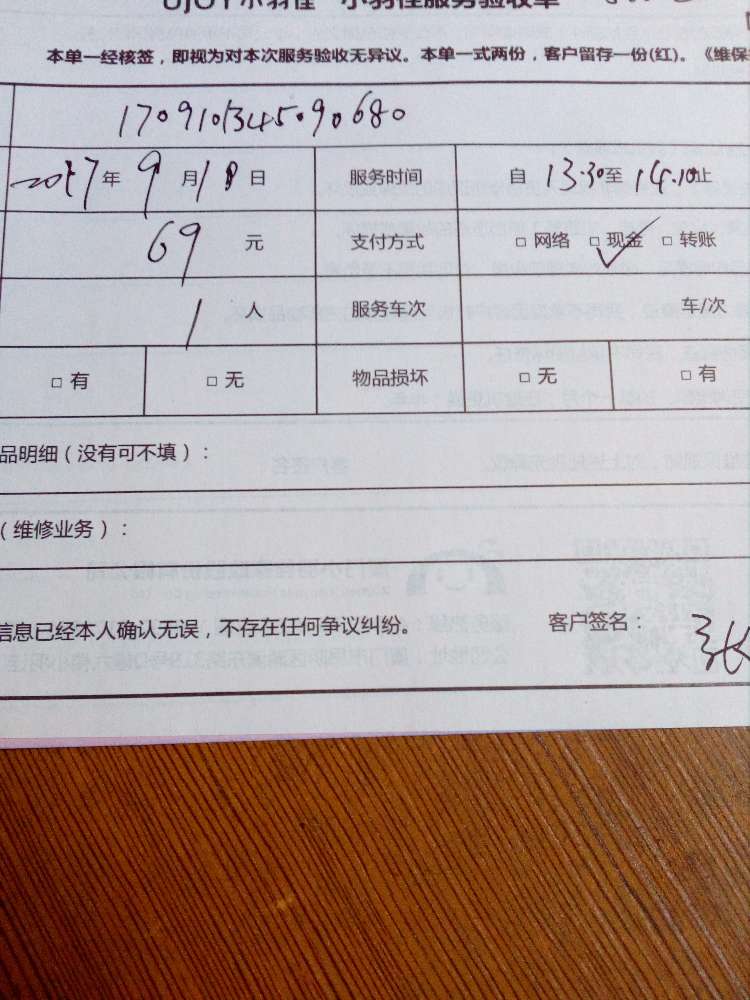 UJOY小羽佳 小羽佳服务验收单
本单一经核签，即视为对本次服务验收无异议。本单一式两份，客户留存一份(红)。《维保
1709101345090680
2017年9月18日 服务时间 自 13.30至 14.10止
69 元 支付方式 □ 网络 □ 现金 ✓ □ 转账
1 人 服务车次 车/次
□ 有 □ 无 物品损坏 □ 无 □ 有
品明细（没有可不填）：
（维修业务）：
信息已经本人确认无误，不存在任何争议纠纷。 客户签名： 张